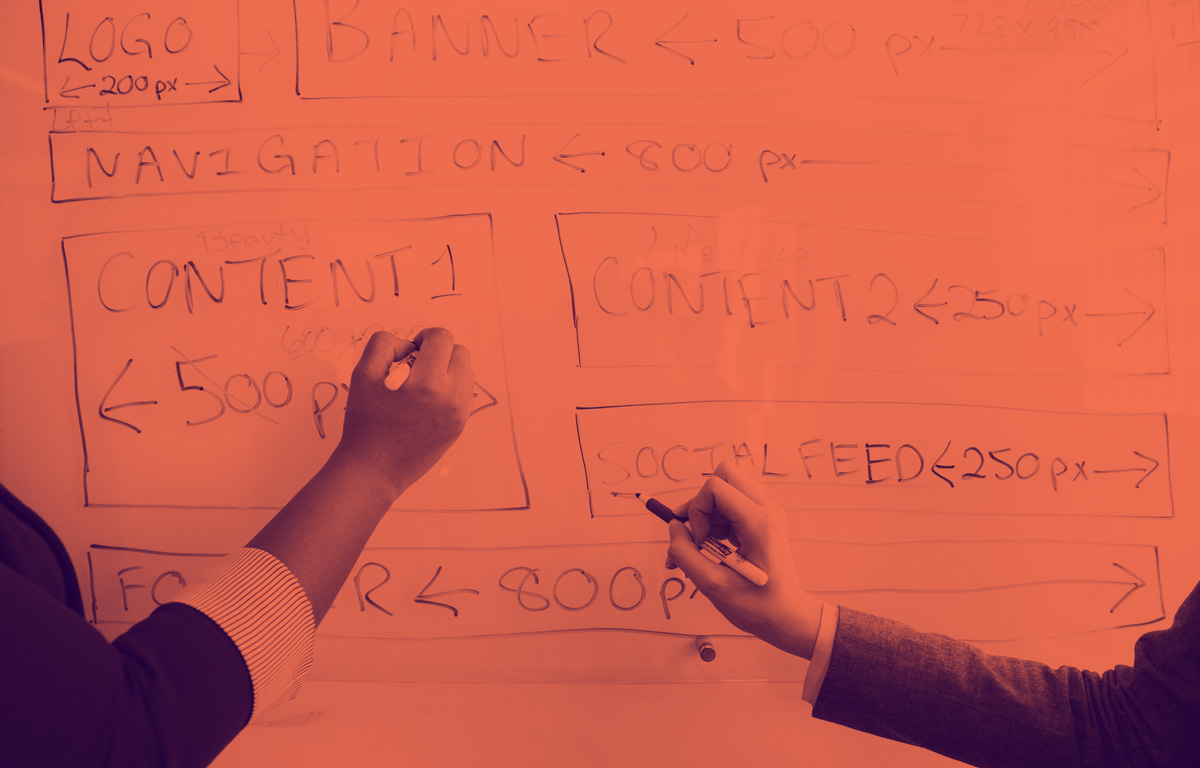 LOGO
← 200 px →
BANNER ← 500 px →
728 x
Left
NAVIGATION ← 800 px →
Beauty
CONTENT 1
600 x
← 500 px →
Life Style
CONTENT 2 ← 250 px →
SOCIAL FEED ← 250 px →
FO R ← 800 px →